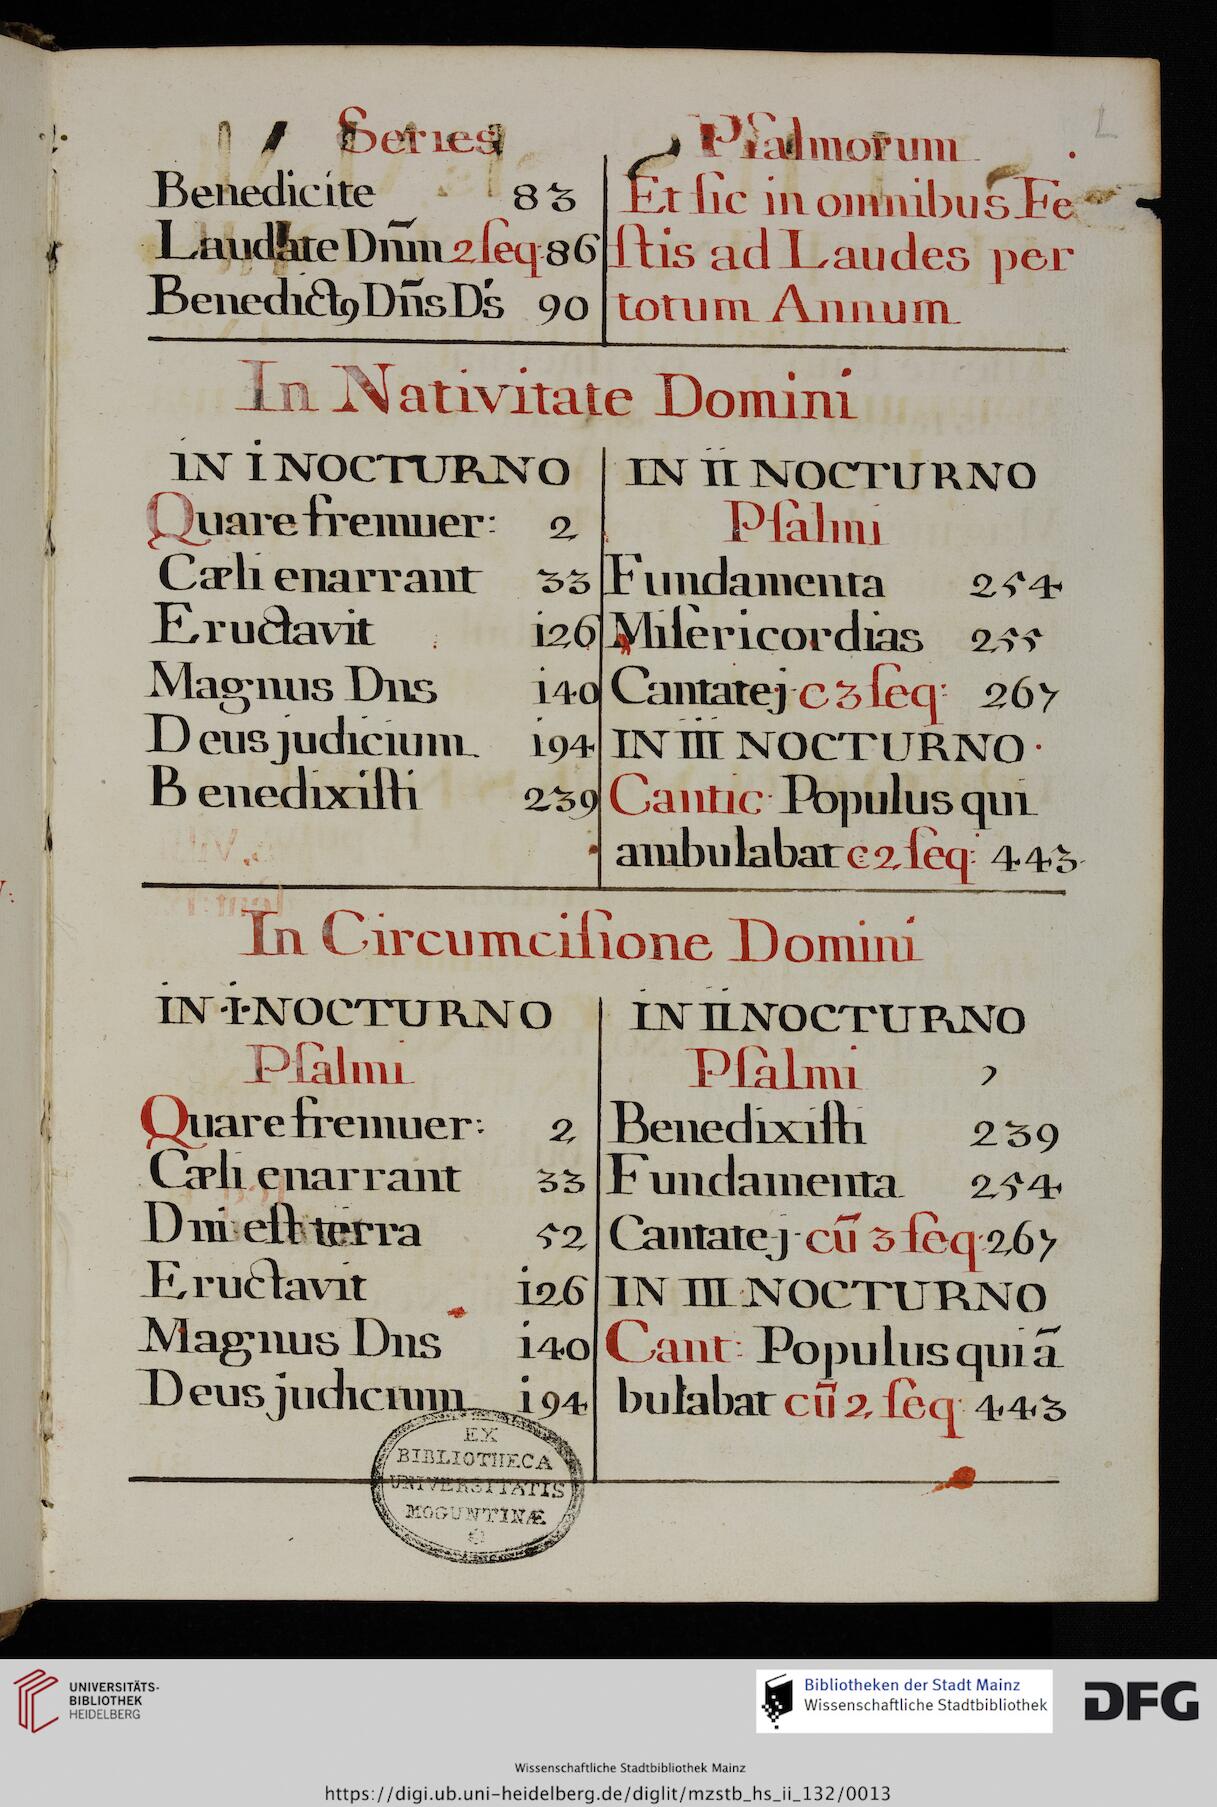 Series Psalmorum
Benedicite 83
Laudate Dnm̃ 2 seq. 86
Benedictꝯ Dñs Ds 90
Et sic in omnibus Fe
stis ad Laudes per
totum Annum
In Nativitate Domini
IN I NOCTURNO
Quare fremuer: 2
Cæli enarrant 33
Eructavit 126
Magnus Dns 140
Deus judicium 194
Benedixisti 239
IN II NOCTURNO
Psalmi
Fundamenta 254
Misericordias 255
Cantate j. c 3 seq: 267
IN III NOCTURNO.
Cantic: Populus qui
ambulabat c 2 seq: 443
In Circumcisione Domini
IN I NOCTURNO
Psalmi
Quare fremuer: 2
Cæli enarrant 33
Dni est terra 52
Eructavit 126
Magnus Dns 140
Deus judicium 194
IN II NOCTURNO
Psalmi
Benedixisti 239
Fundamenta 254
Cantate j. cũ 3 seq: 267
IN III NOCTURNO
Cant: Populus qui ã
bulabat cũ 2 seq: 443
EX
BIBLIOTHECA
UNIVERSITATIS
MOGUNTINÆ
UNIVERSITÄTS-
BIBLIOTHEK
HEIDELBERG
Bibliotheken der Stadt Mainz
Wissenschaftliche Stadtbibliothek
DFG
Wissenschaftliche Stadtbibliothek Mainz
https://digi.ub.uni-heidelberg.de/diglit/mzstb_hs_ii_132/0013